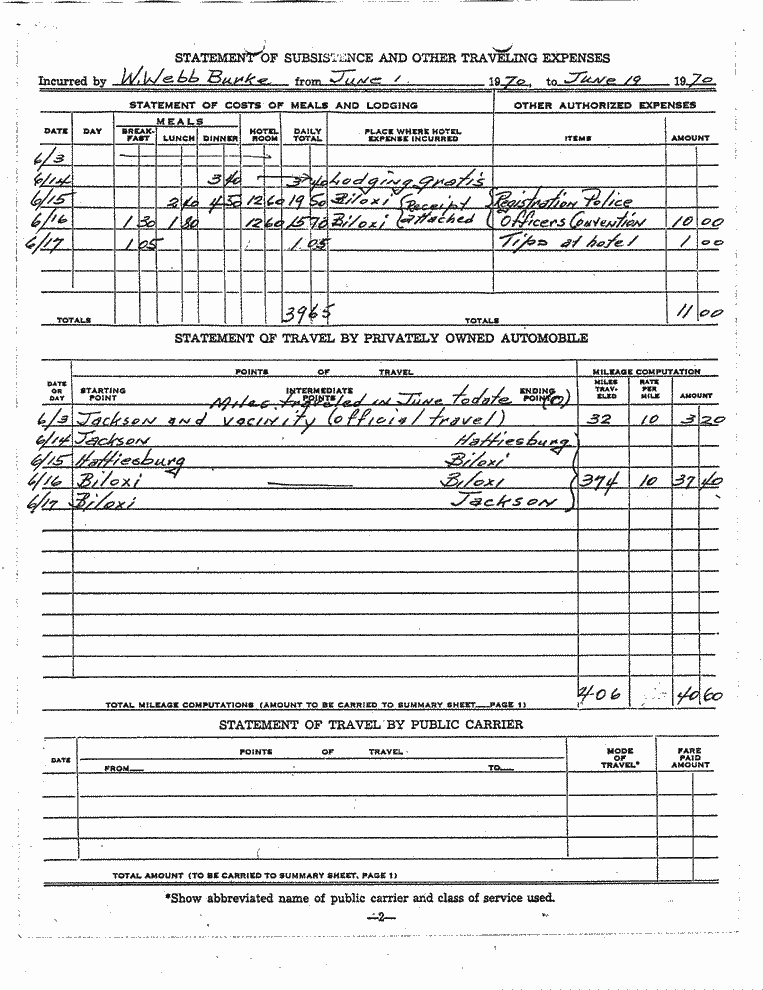 STATEMENT OF SUBSISTENCE AND OTHER TRAVELING EXPENSES
Incurred by W. Webb Burke from June 1 1970, to June 19 1970
STATEMENT OF COSTS OF MEALS AND LODGING OTHER AUTHORIZED EXPENSES
MEALS
DATE DAY BREAK-FAST LUNCH DINNER HOTEL ROOM DAILY TOTAL PLACE WHERE HOTEL EXPENSE INCURRED ITEMS AMOUNT
6/3
6/14 3 40 3 40 Lodging gratis
6/15 2 40 4 50 12 60 19 50 Biloxi (Receipt Registration Police
6/16 1 30 1 80 12 60 15 70 Biloxi attached Officers Convention 10 00
6/17 1 05 1 05 Tips at hotel 1 00
TOTALS 39 65 TOTALS 11 00
STATEMENT OF TRAVEL BY PRIVATELY OWNED AUTOMOBILE
POINTS OF TRAVEL MILEAGE COMPUTATION
DATE OR DAY STARTING POINT INTERMEDIATE POINTS ENDING POINT MILES TRAV-ELED RATE PER MILE AMOUNT
Miles traveled in June to date (0)
6/3 Jackson and vacinity (official travel) 32 10 3 20
6/14 Jackson Hattiesburg
6/15 Hattiesburg Biloxi
6/16 Biloxi Biloxi 374 10 37 40
6/17 Biloxi Jackson
TOTAL MILEAGE COMPUTATIONS (AMOUNT TO BE CARRIED TO SUMMARY SHEET PAGE 1) 406 40 60
STATEMENT OF TRAVEL BY PUBLIC CARRIER
DATE POINTS OF TRAVEL MODE OF TRAVEL* FARE PAID AMOUNT
FROM TO
TOTAL AMOUNT (TO BE CARRIED TO SUMMARY SHEET, PAGE 1)
*Show abbreviated name of public carrier and class of service used.
—2—